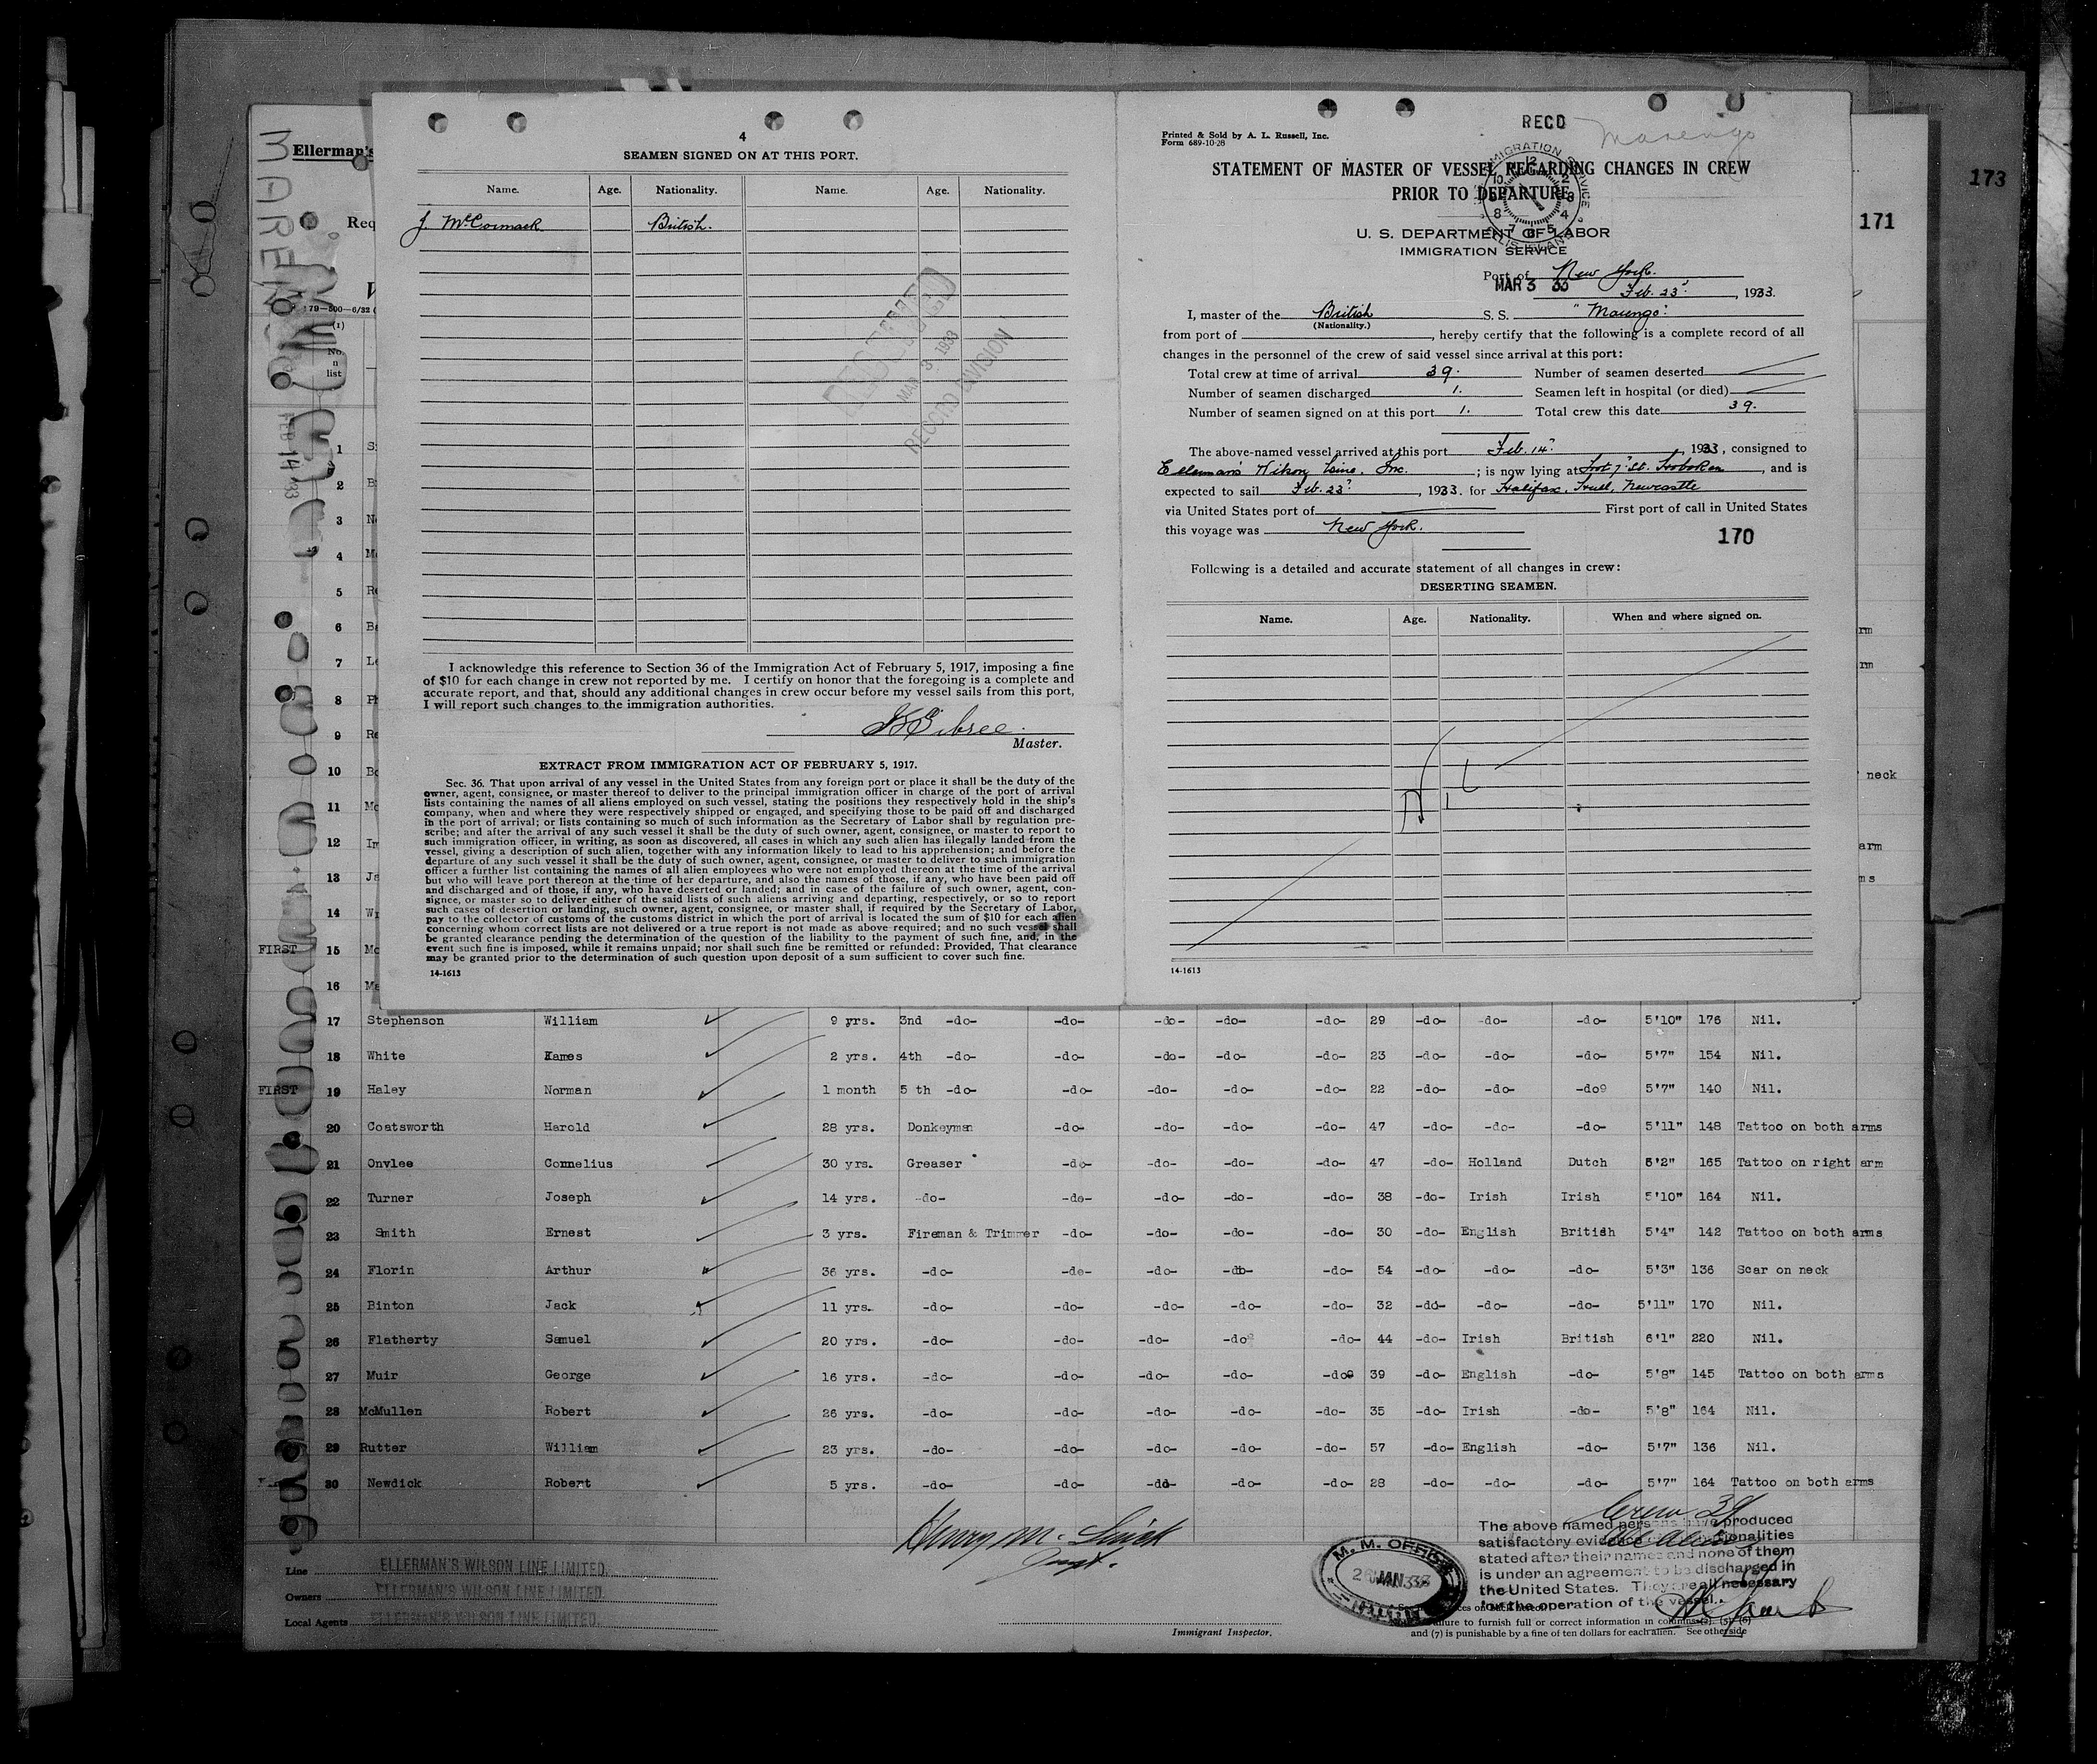 MARENGO
FEB 14 1933
Ellerman's
Req
179-500-6/32
(1)
No.
n
list
4
SEAMEN SIGNED ON AT THIS PORT.
Name. Age. Nationality. Name. Age. Nationality.
J. McCormack British.
MAR 3 1933
RECORD DIVISION
I acknowledge this reference to Section 36 of the Immigration Act of February 5, 1917, imposing a fine
of $10 for each change in crew not reported by me. I certify on honor that the foregoing is a complete and
accurate report, and that, should any additional changes in crew occur before my vessel sails from this port,
I will report such changes to the immigration authorities.
Master.
EXTRACT FROM IMMIGRATION ACT OF FEBRUARY 5, 1917.
Sec. 36. That upon arrival of any vessel in the United States from any foreign port or place it shall be the duty of the
owner, agent, consignee, or master thereof to deliver to the principal immigration officer in charge of the port of arrival
lists containing the names of all aliens employed on such vessel, stating the positions they respectively hold in the ship's
company, when and where they were respectively shipped or engaged, and specifying those to be paid off and discharged
in the port of arrival; or lists containing so much of such information as the Secretary of Labor shall by regulation pre-
scribe; and after the arrival of any such vessel it shall be the duty of such owner, agent, consignee, or master to report to
such immigration officer, in writing, as soon as discovered, all cases in which any such alien has illegally landed from the
vessel, giving a description of such alien, together with any information likely to lead to his apprehension; and before the
departure of any such vessel it shall be the duty of such owner, agent, consignee, or master to deliver to such immigration
officer a further list containing the names of all alien employees who were not employed thereon at the time of the arrival
but who will leave port thereon at the time of her departure, and also the names of those, if any, who have been paid off
and discharged and of those, if any, who have deserted or landed; and in case of the failure of such owner, agent, con-
signee, or master so to deliver either of the said lists of such aliens arriving and departing, respectively, or so to report
such cases of desertion or landing, such owner, agent, consignee, or master shall, if required by the Secretary of Labor,
pay to the collector of customs of the customs district in which the port of arrival is located the sum of $10 for each alien
concerning whom correct lists are not delivered or a true report is not made as above required; and no such vessel shall
be granted clearance pending the determination of the question of the liability to the payment of such fine, and, in the
event such fine is imposed, while it remains unpaid; nor shall such fine be remitted or refunded: Provided, That clearance
may be granted prior to the determination of such question upon deposit of a sum sufficient to cover such fine.
14-1613
Printed & Sold by A. L. Russell, Inc.
Form 689-10-28
RECD
Marengo
STATEMENT OF MASTER OF VESSEL REGARDING CHANGES IN CREW
PRIOR TO DEPARTURE
U. S. DEPARTMENT OF LABOR
IMMIGRATION SERVICE
Port of New York.
MAR 3 33
Feb. 23, 1933.
I, master of the British S. S. "Marengo"
(Nationality.)
from port of , hereby certify that the following is a complete record of all
changes in the personnel of the crew of said vessel since arrival at this port:
Total crew at time of arrival 39. Number of seamen deserted
Number of seamen discharged 1. Seamen left in hospital (or died)
Number of seamen signed on at this port 1. Total crew this date 39.
The above-named vessel arrived at this port Feb. 14, 1933, consigned to
Ellerman's Wilson Line, Inc. ; is now lying at Foot 7 St. Hoboken, and is
expected to sail Feb. 23, 1933. for Halifax, Hull, Newcastle
via United States port of First port of call in United States
this voyage was New York.
170
Following is a detailed and accurate statement of all changes in crew:
DESERTING SEAMEN.
Name. Age. Nationality. When and where signed on.
Nil
14-1613
171
173
1
2
3
4
5
6
7
8
9
10 neck
11
12 arm
13
14
FIRST 15
16
17 Stephenson William 9 yrs. 3nd -do- -do- -do- -do- -do- 29 -do- -do- -do- 5'10" 176 Nil.
18 White Kames 2 yrs. 4th -do- -do- -do- -do- -do- 23 -do- -do- -do- 5'7" 154 Nil.
FIRST 19 Haley Norman 1 month 5 th -do- -do- -do- -do- -do- 22 -do- -do- -do9 5'7" 140 Nil.
20 Coatsworth Harold 28 yrs. Donkeyman -do- -do- -do- -do- 47 -do- -do- -do- 5'11" 148 Tattoo on both arms
21 Onvlee Cornelius 30 yrs. Greaser -do- -do- -do- -do- 47 -do- Holland Dutch 5'2" 165 Tattoo on right arm
22 Turner Joseph 14 yrs. -do- -do- -do- -do- -do- 38 -do- Irish Irish 5'10" 164 Nil.
23 Smith Ernest 3 yrs. Fireman & Trimmer -do- -do- -do- -do- 30 -do- English British 5'4" 142 Tattoo on both arms
24 Florin Arthur 36 yrs. -do- -do- -do- -do- -do- 54 -do- -do- -do- 5'3" 136 Scar on neck
25 Binton Jack 11 yrs. -do- -do- -do- -do- -do- 32 -do- -do- -do- 5'11" 170 Nil.
26 Flatherty Samuel 20 yrs. -do- -do- -do- -do- -do- 44 -do- Irish British 6'1" 220 Nil.
27 Muir George 16 yrs. -do- -do- -do- -do- -do- 39 -do- English -do- 5'8" 145 Tattoo on both arms
28 McMullen Robert 26 yrs. -do- -do- -do- -do- -do- 35 -do- Irish -do- 5'8" 164 Nil.
29 Rutter William 23 yrs. -do- -do- -do- -do- -do- 57 -do- English -do- 5'7" 136 Nil.
30 Newdick Robert 5 yrs. -do- -do- -do- -do- -do- 28 -do- -do- -do- 5'7" 164 Tattoo on both arms
Crew 39
Line ELLERMAN'S WILSON LINE LIMITED.
Owners ELLERMAN'S WILSON LINE LIMITED.
Local Agents ELLERMAN'S WILSON LINE LIMITED.
Immigrant Inspector.
M. M. OFFICE
26 JAN 33
The above named persons have produced
satisfactory evidence nationalities
stated after their names and none of them
is under an agreement to be discharged in
the United States. They are all necessary
for the operation of the vessel.
failure to furnish full or correct information in columns
and (7) is punishable by a fine of ten dollars for each alien. See other side